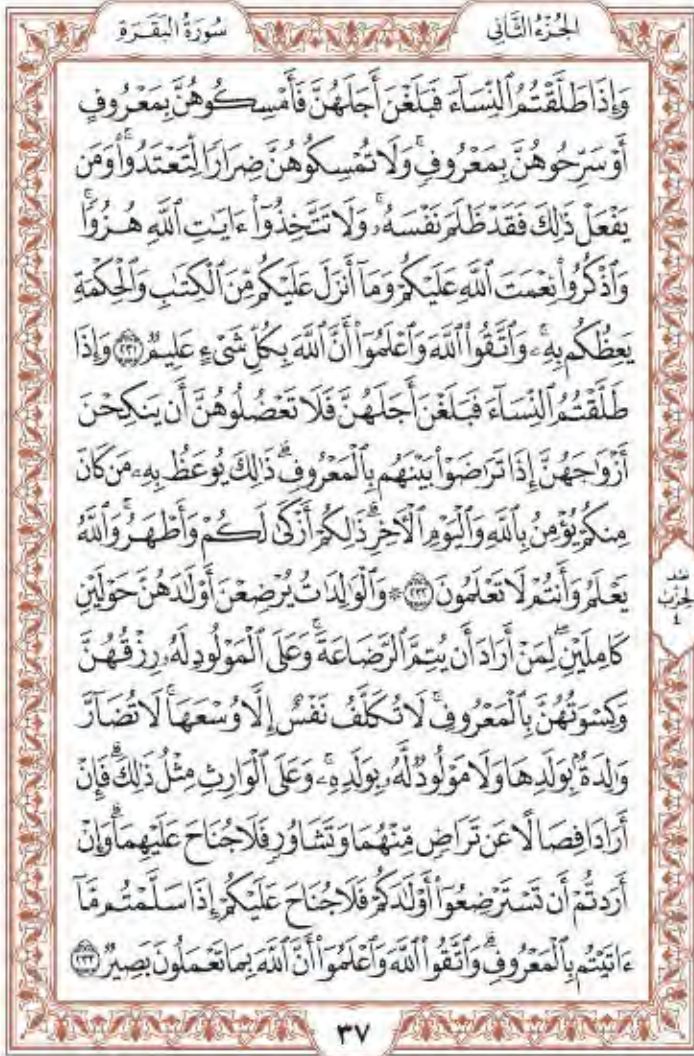 الجُزْءُ الثَّانِي
سُورَةُ البَقَرَةِ
وَإِذَا طَلَّقْتُمُ ٱلنِّسَآءَ فَبَلَغْنَ أَجَلَهُنَّ فَأَمْسِكُوهُنَّ بِمَعْرُوفٍ
أَوْ سَرِّحُوهُنَّ بِمَعْرُوفٖۚ وَلَا تُمْسِكُوهُنَّ ضِرَارٗا لِّتَعْتَدُواْۚ وَمَن
يَفْعَلْ ذَٰلِكَ فَقَدْ ظَلَمَ نَفْسَهُۥۚ وَلَا تَتَّخِذُوٓاْ ءَايَٰتِ ٱللَّهِ هُزُوٗاۚ
وَٱذْكُرُواْ نِعْمَتَ ٱللَّهِ عَلَيْكُمْ وَمَآ أَنزَلَ عَلَيْكُم مِّنَ ٱلْكِتَٰبِ وَٱلْحِكْمَةِ
يَعِظُكُم بِهِۦۚ وَٱتَّقُواْ ٱللَّهَ وَٱعْلَمُوٓاْ أَنَّ ٱللَّهَ بِكُلِّ شَيْءٍ عَلِيمٞ ٢٣١ وَإِذَا
طَلَّقْتُمُ ٱلنِّسَآءَ فَبَلَغْنَ أَجَلَهُنَّ فَلَا تَعْضُلُوهُنَّ أَن يَنكِحْنَ
أَزْوَٰجَهُنَّ إِذَا تَرَٰضَوْاْ بَيْنَهُم بِٱلْمَعْرُوفِۗ ذَٰلِكَ يُوعَظُ بِهِۦ مَن كَانَ
مِنكُمْ يُؤْمِنُ بِٱللَّهِ وَٱلْيَوْمِ ٱلْأٓخِرِۗ ذَٰلِكُمْ أَزْكَىٰ لَكُمْ وَأَطْهَرُۚ وَٱللَّهُ
يَعْلَمُ وَأَنتُمْ لَا تَعْلَمُونَ ٢٣٢ ۞ وَٱلْوَٰلِدَٰتُ يُرْضِعْنَ أَوْلَٰدَهُنَّ حَوْلَيْنِ
كَامِلَيْنِۖ لِمَنْ أَرَادَ أَن يُتِمَّ ٱلرَّضَاعَةَۚ وَعَلَى ٱلْمَوْلُودِ لَهُۥ رِزْقُهُنَّ
وَكِسْوَتُهُنَّ بِٱلْمَعْرُوفِۚ لَا تُكَلَّفُ نَفْسٌ إِلَّا وُسْعَهَاۚ لَا تُضَآرَّ
وَٰلِدَةُۢ بِوَلَدِهَا وَلَا مَوْلُودٞ لَّهُۥ بِوَلَدِهِۦۚ وَعَلَى ٱلْوَارِثِ مِثْلُ ذَٰلِكَۗ فَإِنْ
أَرَادَا فِصَالًا عَن تَرَاضٖ مِّنْهُمَا وَتَشَاوُرٖ فَلَا جُنَاحَ عَلَيْهِمَاۗ وَإِنْ
أَرَدتُّمْ أَن تَسْتَرْضِعُوٓاْ أَوْلَٰدَكُمْ فَلَا جُنَاحَ عَلَيْكُمْ إِذَا سَلَّمْتُم مَّآ
ءَاتَيْتُم بِٱلْمَعْرُوفِۗ وَٱتَّقُواْ ٱللَّهَ وَٱعْلَمُوٓاْ أَنَّ ٱللَّهَ بِمَا تَعْمَلُونَ بَصِيرٞ ٢٣٣
الحِزْب
٤
٣٧